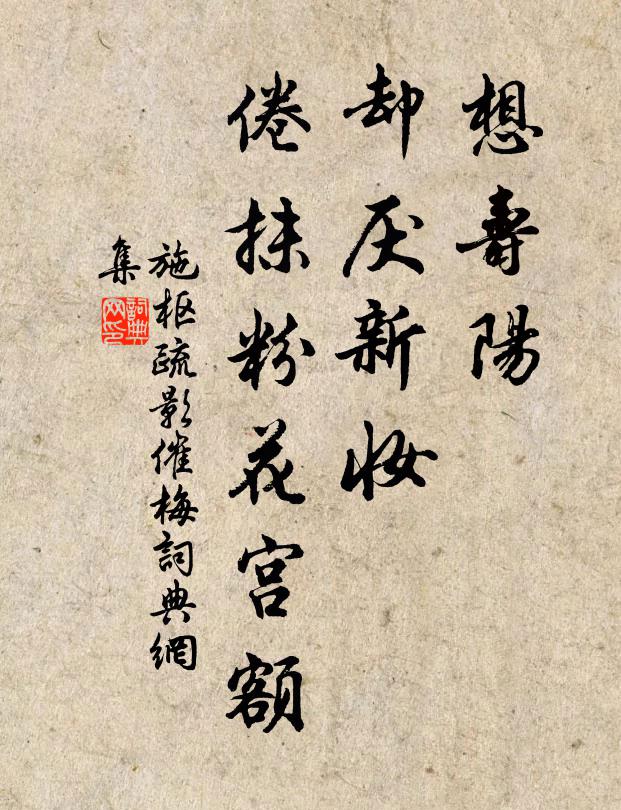 想壽陽
却厌新妆
倦抹粉花宫额
施枢疏影催梅詞典網
集
詞典
网印